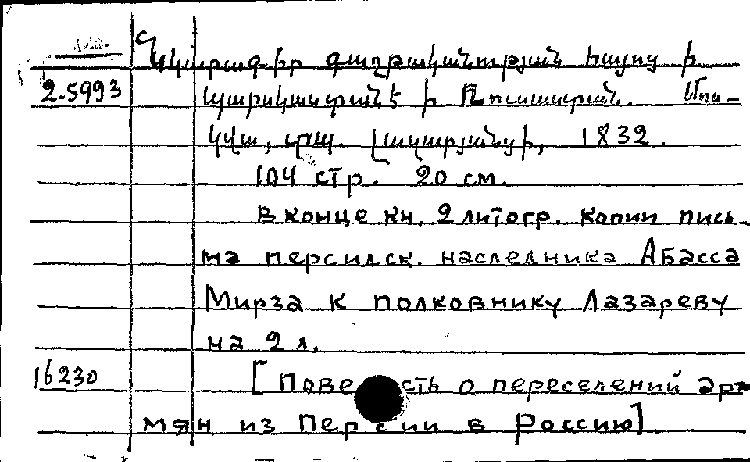 Նկարագիր գաղթականութեան հայոց ի
2.5993 Պարսկաստանէ ի Ռուսաստան. Մոս-
կվա, տպ. Լազարյանցի, 1832.
104 стр. 20 см.
В конце кн. 2 литогр. копии пись-
ма персидск. наследника Абасса
Мирза к полковнику Лазареву
на 2 л.
16230 [Повесть о переселений ар-
мян из Персии в Россию]